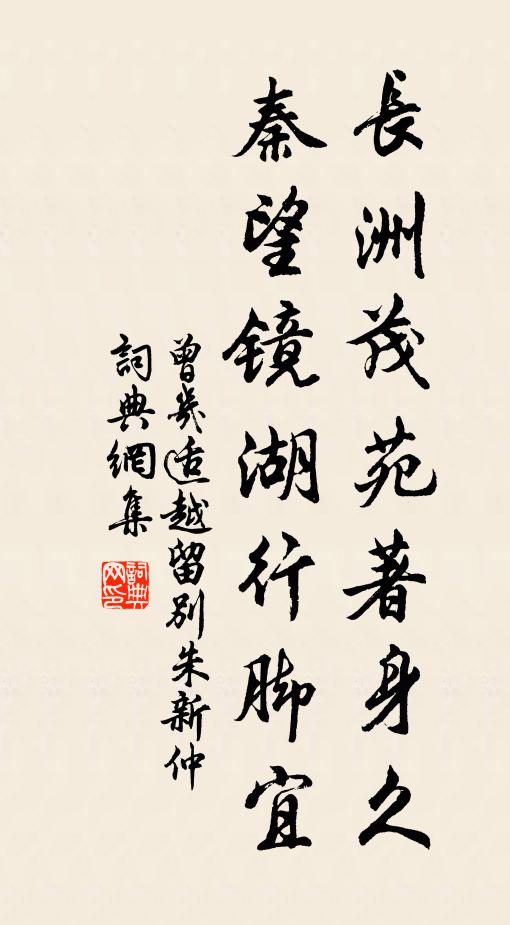 長洲茂苑著身久
秦望鏡湖行脚宜
曾幾适越留別朱新仲
詞典網集
詞典网印